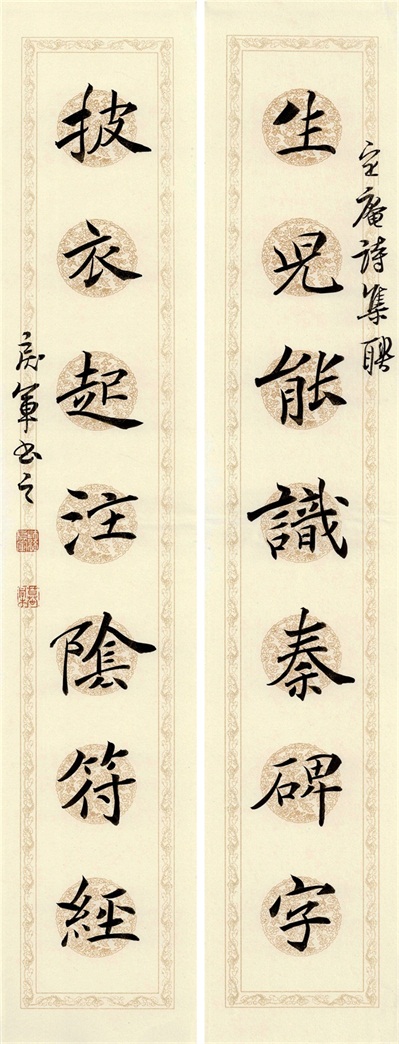 定庵詩集聯
生兒能識秦碑字
披衣起注陰符經
軍書之